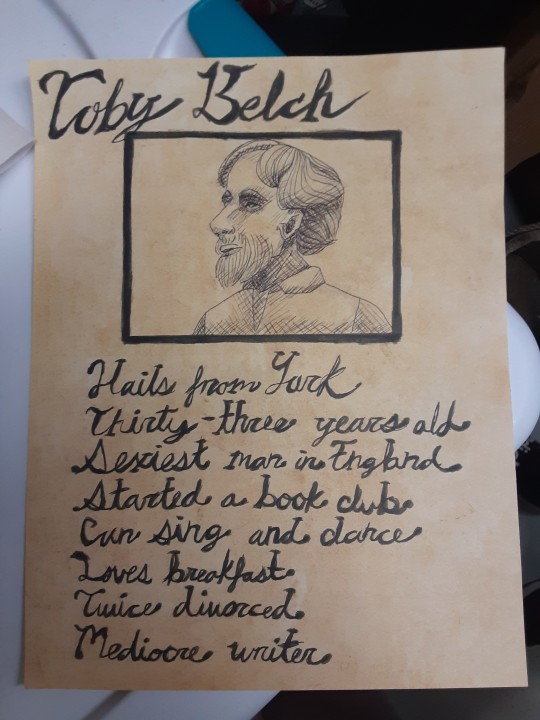 Toby Belch
Hails from York
Thirty-three years old
Sexiest man in England
Started a book club
Can sing and dance
Loves breakfast
Twice divorced
Mediocre writer